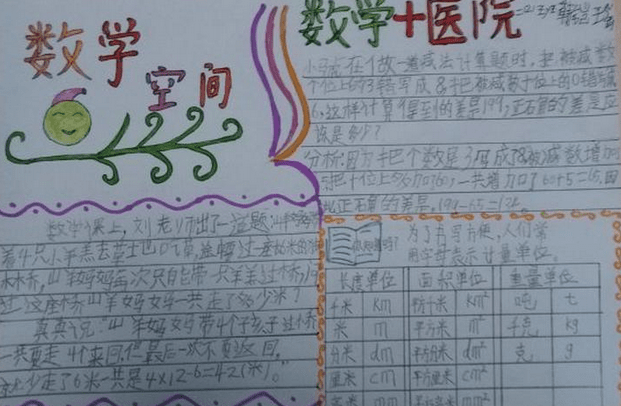 数学
空间
数学+医院
小马虎在做一道减法计算题时，把被减数
个位上的3错写成8，把被减数十位上的0错写成
6，这样计算得到的差是199，正确的差应
该是多少？
分析：因为把个数是3写成8被减数增加
5，把十位上多加了60，一共增加了60+5=65，因
此正确的差是：199-65=134。
数学课上，刘老师出了一道题：山羊妈妈
着4只小羊羔去草
木桥，山羊妈妈每次只能带一只羊羔过桥，
过这座桥山羊妈妈一共走了多少米？
真真说：山羊妈妈带4个孩子过桥
一共要走4个来回，但最后一次不要返回，
少走了6米一共是4×12-6=42（米）。
你知道吗？
为了书写方便，人们常
用字母表示计量单位。
长度单位 面积单位 重量单位
千米 km 平方千米 km² 吨 t
米 m 平方米 m² 千克 kg
分米 dm 平方分米 dm² 克 g
厘米 cm 平方厘米 cm²
毫米 mm 平方毫米 mm²